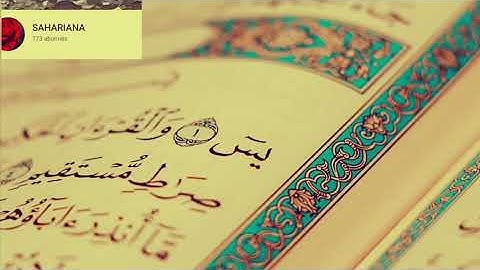 SAHARIANA
773 abonnés
يسٓ ١ وَٱلْقُرْءَانِ
صِرَٰطٍ مُّسْتَقِيمٍ
مَّآ أُنذِرَ ءَابَآؤُهُمْ